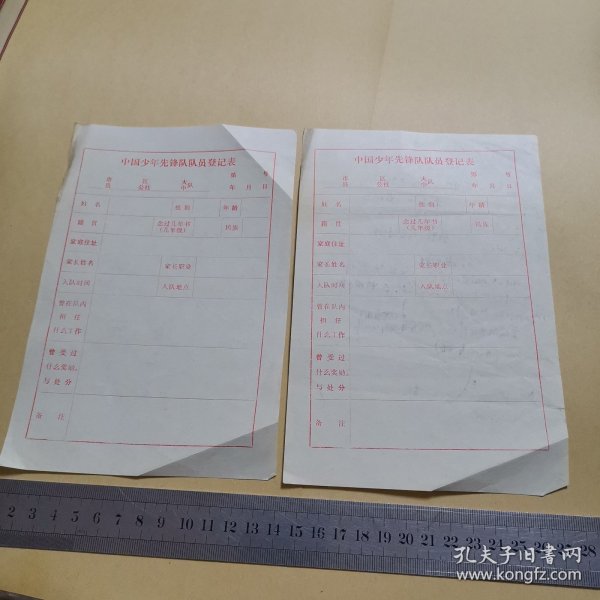 中国少年先锋队队员登记表
第 号
市 区 大
县 公社 中 队 年 月 日
姓名 性别 年龄
籍贯 念过几年书(几年级) 民族
家庭住址
家长姓名 家长职业
入队时间 入队地点
曾在队内
担任
什么工作
曾受过
什么奖励
与处分
备注
中国少年先锋队队员登记表
第 号
市 区 大
县 公社 中 队 年 月 日
姓名 性别 年龄
籍贯 念过几年书(几年级) 民族
家庭住址
家长姓名 家长职业
入队时间 入队地点
曾在队内
担任
什么工作
曾受过
什么奖励
与处分
备注
2 3 4 5 6 7 8 9 10 11 12 13 14 15 16 17 18 19 20 21 22 23 24 25 26 27 28
孔夫子旧书网
www.kongfz.com